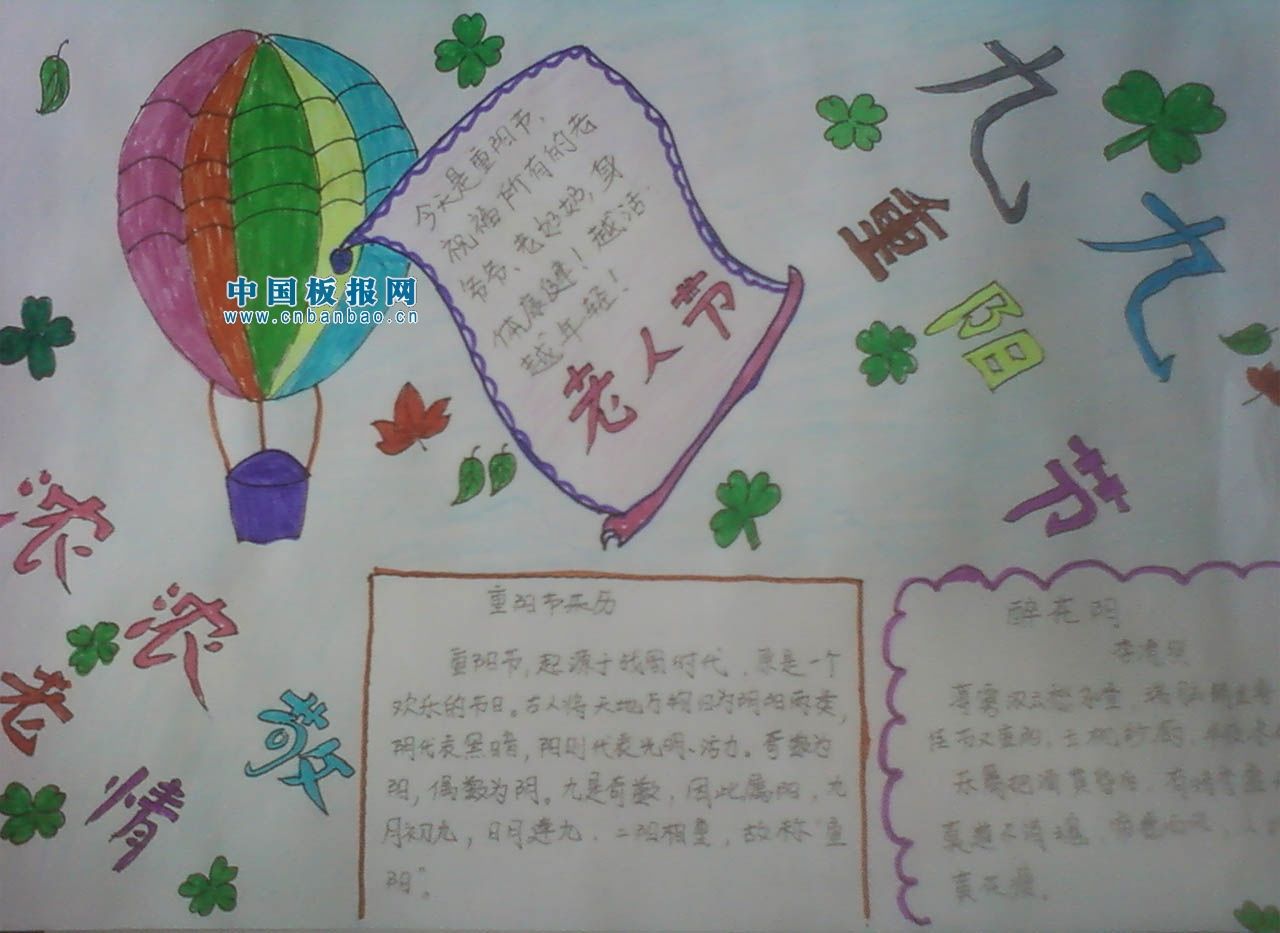 九九
重阳节
今天是重阳节，
祝福所有的老
爷爷、老奶奶，身
体康健！越活
越年轻！
老人节
中国板报网
www.cnbanbao.cn
浓浓
敬老情
重阳节来历
重阳节，起源于战国时代，原是一个
欢乐的节日。古人将天地万物归为阴阳两类，
阴代表黑暗，阳则代表光明、活力。奇数为
阳，偶数为阴。九是奇数，因此属阳，九
月初九，日月逢九，二阳相重，故称“重
阳”。
醉花阴
李清照
薄雾
佳节又重阳，
东篱把酒黄昏后，有暗香盈
莫道不消魂，